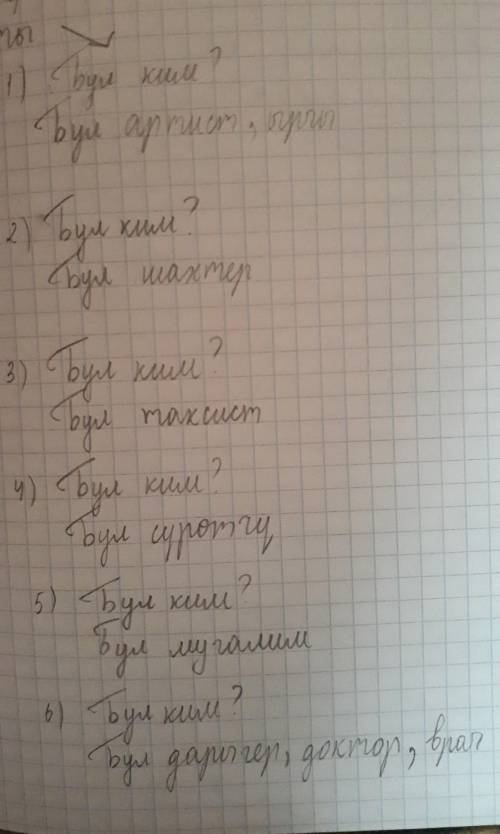 ты
1) Бул ким?
Бул артист, ырчы
2) Бул ким?
Бул шахтер
3) Бул ким?
Бул таксист
4) Бул ким?
Бул суротчу
5) Бул ким?
Бул мугалим
6) Бул ким?
Бул дарыгер, доктор, врач